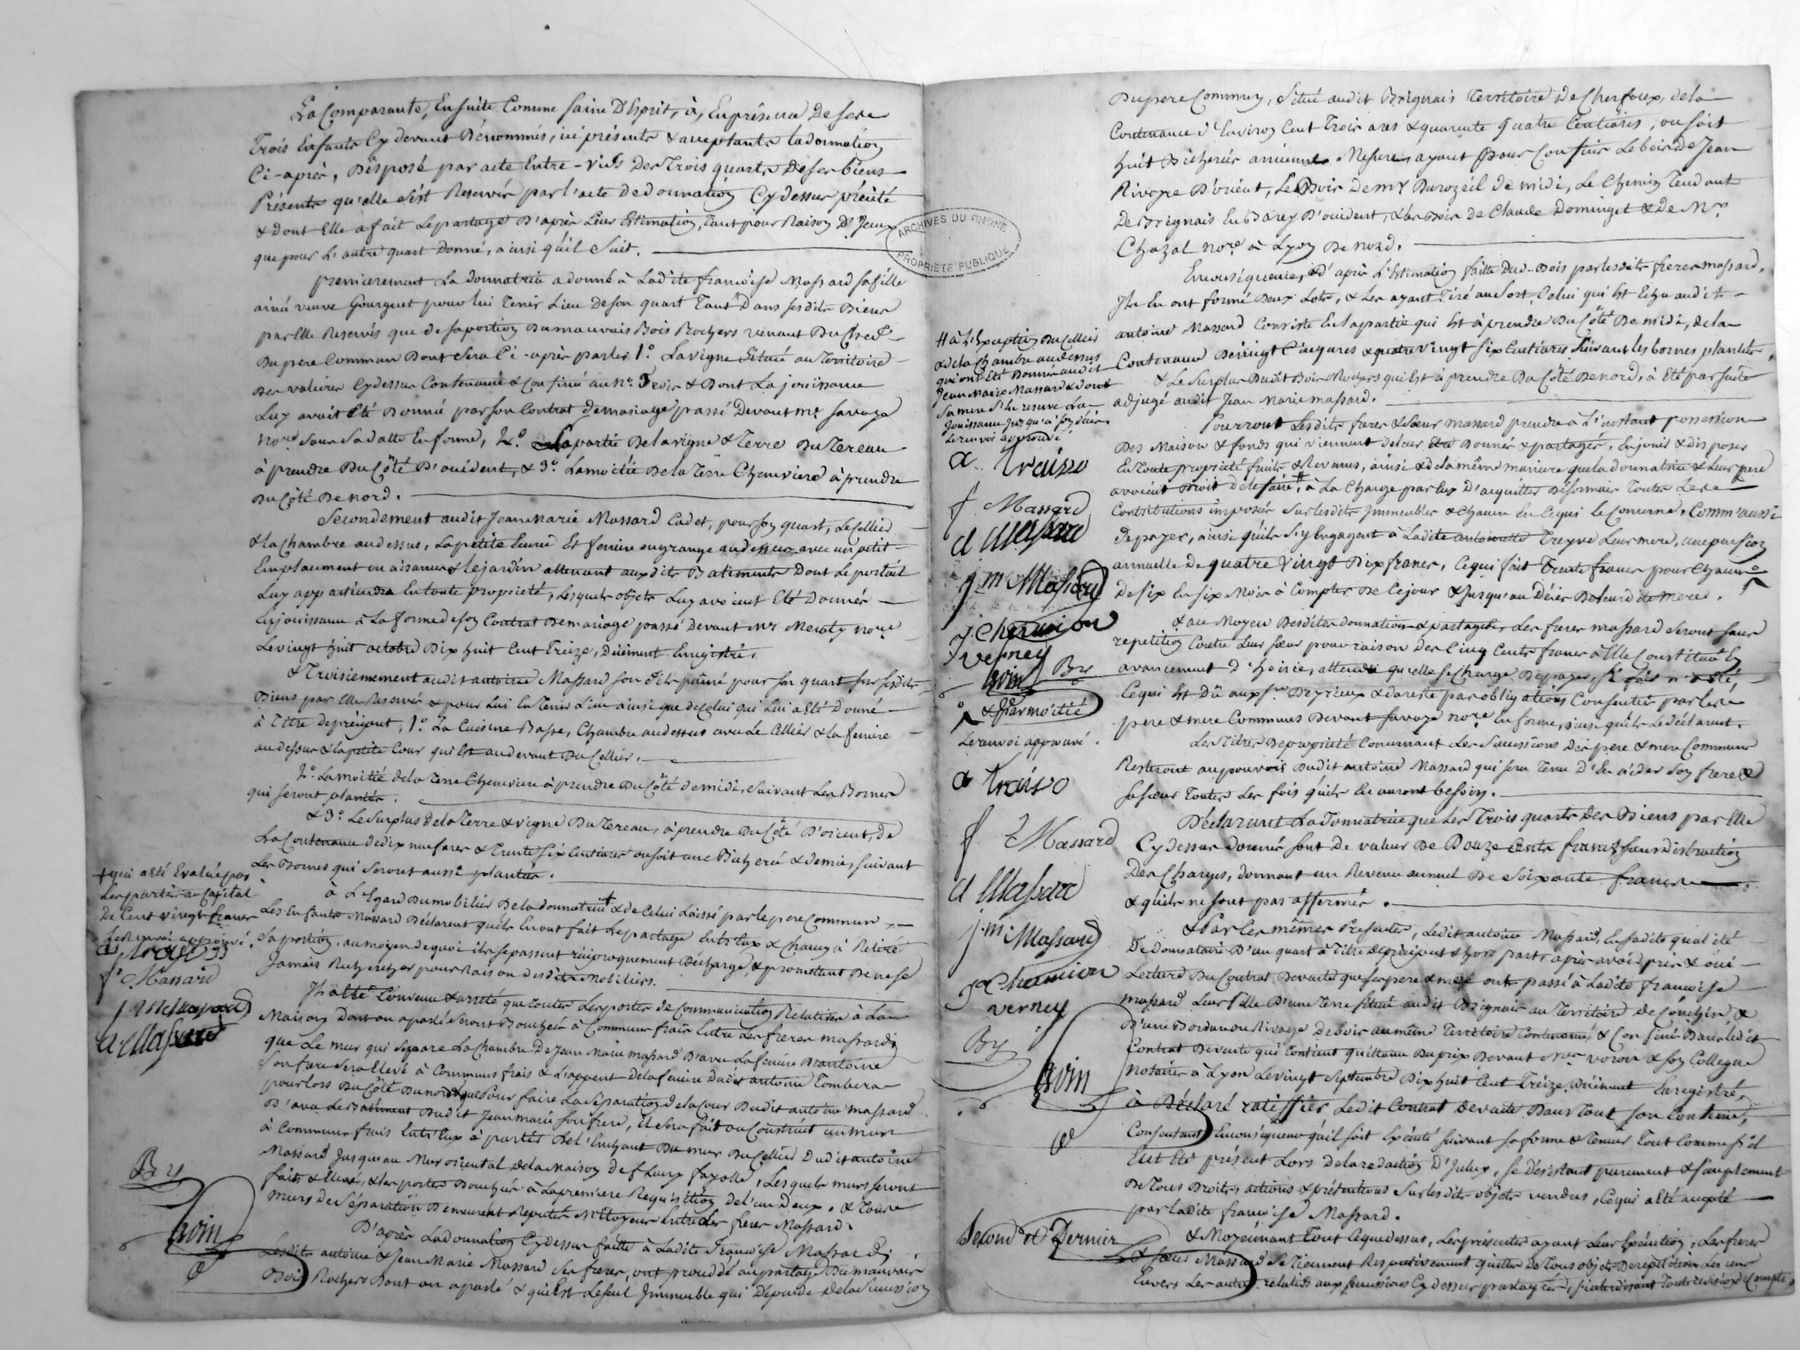 La Comparante, Ensuite Comme Saine D'Esprit, à, En présence de ses
Trois Enfants Cy devant Dénommés, ici présents & acceptants la donation
Ci-après, Disposé par acte Entre-vifs Des Trois quarts De ses biens
Présents qu'elle s'est Reservée par l'acte de donnation Cydessus précité
& dont Elle a fait Le partage D'après Leur Estimation, tant pour Raison D'Iceux
que pour L'autre quart Donné, ainsi qu'il Suit.
premierement La donnatrice a donné à Ladite francoise Massard sa fille
ainée veuve Gourguet pour lui Tenir Lieu De son quart Tant Dans sesdits Biens
par Elle Reservés que de sa portion Du mauvais Bois Rochers venant Du Chef
Du pere Commun Dont Sera Ci-après parlé 1.° La vigne Située au Territoire
Des valieres Cydessus Contenancé & Confiné au N.° & Dont La jouissance
Luy avoit été Donnée par Son Contrat de mariage passé Devant M.e Savoye
No.re Sous Sa datte En forme, 2.° La partie De la vigne & Terre Du Tereau
à prendre Du Côté D'occident, & 3.° La moitié De la Terre Cheneviere à prendre
Du Côté De nord.
Secondement audit Jean Marie Massard Cadet, pour Son quart, Le Cellier
& La Chambre audessus, La petite Ecurie Et feniere ou grange audessus avec un petit
Emplacement ou aisance & Le jardin attenant auxdits Batiments Dont Le portail
Luy appartiendra En toute propriété, Lesquels objets Luy avoient Eté Donnés
En jouissance à La forme de son Contrat De mariage passé Devant M.e no.re
Le vingt huit octobre Dix huit Cent Treize, Duement Enregistré.
& Troisiemement audit antoine Massard Son fils puiné pour Son quart Sur Sesdits
Biens par Elle Reservés & pour Lui En Tenir Lieu ainsi que de Celui qui Lui a été Donné
à Titre de préciput, 1.° La Cuisine Basse, Chambre audessus avec Le Cellier & La feniere
audessus & La petite Cour qui Est au devant Du Cellier.
2.° La moitié de la Terre Cheneviere à prendre Du Côté de midi, Suivant Les Bornes
qui Seront plantées.
& 3.° Le Surplus de la Terre & vigne Du Tereau, à prendre Du Côté D'orient, De
La Contenance de dix neuf ares & Trente Six Centiares ou soit une Bicherée & demie, Suivant
Les Bornes qui Seront aussi plantées.
à L'Egard Du mobilier De la donnatrice + & de Celui Laissé par le pere Commun,
Les Enfants Massard Déclarent qu'ils En ont fait Le partage Entr'Eux & Chacun à Retiré
Sa portion, au moyen de quoi ils se passent réciproquement Décharge & promettent De ne se
Jamais Rechercher pour Raison desdits Mobiliers.
Il a été Convenu & arrêté que toutes Les portes de Communication Relatives à La
Maison Dont on a parlé Seront Bouchées à Communs frais Entre Les freres massard
que Le mur qui Separe La Chambre De Jean Marie massard D'avec La feniere D'antoine
Son frere Sera Elevé à Communs frais & L'appent De la feniere dudit antoine Tombera
pour lors Du Côté Du nord & que Pour faire La Séparation de la Cour Dudit antoine massard
D'avec Les Batiment Dudit Jean Marie Son frere, il Sera fait ou Construit un mur
à Communs frais Entr'Eux à partir De L'Encant Du mur Du Cellier Dudit antoine
Massard Jusqu'au Mur oriental de la Maison de fleury fayolle, Lesquels murs Seront
faits & Elevés, & Les portes Bouchées à La premiere Requisition de l'un Deux, & Tous
murs de Séparation Demeurent Réputés Mitoyens Entre Les freres Massard.
D'après La donnation Cydessus faite à Ladite francoise Massard,
Lesdits antoine & Jean Marie Massard Ses freres, ont procédé au partage Du mauvais
Bois Rochers Dont on a parlé & qui Est Le Seul Immeuble qui Depende De la Succession
+ qui a été Evalué par
Les parties au Capital
de Cent vingt francs
Le Renvoi approuvé.
f.e Massard
j m Massard
a. Massard
By
ARCHIVES DU RHONE
PROPRIÉTÉ PUBLIQUE
Du pere Commun, Situé audit Brignais Territoire De Cherfoux, de la
Contenance d'Environ Cent Trois ares & quarante quatre Centiares, ou soit
huit Bicherées ancienne Mesure, ayant Pour Confins Le bois de Jean
Rivoyre D'orient, Le Bois De M.r Durozeil de midi, Le Chemin Tendant
De Brignais En Barey D'occident, & Les Bois de Claude Dominget & de M.e
Chazal No.re à Lyon De nord.
En conséquence, D'après L'Estimation faite Dud. Bois par lesdits freres massard,
Ils En ont formé Deux Lots, & Les ayant Tiré au Sort, Celui qui Est Echu audit
antoine Massard Consiste En la partie qui Est à prendre Du Côté De midi, de la
Contenance De vingt Cinq ares & quatre vingt Six Centiares Suivant les bornes plantées,
& Le Surplus Dudit Bois Rochers qui Est à prendre Du Côté De nord, à Eté par Suite
adjugé audit Jean Marie massard.
Pourront Lesdits freres & Sœur massard prendre à L'instant possession
Des Maison & fonds qui viennent de leur être Donnés & partagés, En jouir & disposer
En Toute propriété fruits & Revenus, ainsi & de la même maniere que la donnatrice & Leur pere
avoient Droit de le faire #, à La Charge par Eux D'acquitter Désormais Toutes Les
Contributions imposées Sur lesdits Immeubles & Chacun En Ce qui le Concerne, Comm'aussi
De payer, ainsi qu'ils S'y Engagent à Ladite antoinette Treyve Leur mere, une pension
annuelle De quatre vingt Dix francs, Ce qui fait Trente francs pour Chacun
de Six En Six Mois à Compter De Ce jour & Jusqu'au Décès De leurd. mere.
& au Moyen Desdites donnations & partages, Les freres massard Seront Sans
repetition Contre Leur Sœur pour raison des Cinq Cents francs à Elle Constitués En
avancement D'hoirie, attendu qu'elle Se Charge De payer, Si fait n'a été,
Ce qui Est Dû aux S.rs Deyrieux & dareste par obligations Consenties par Les
pere & mere Communs Devant Savoye No.re En forme, ainsi qu'ils Le déclarent.
Les Titres De propriété Concernant Les Successions Des pere & mere Communs
Resteront au pouvoir Dudit antoine Massard qui Sera Tenu D'En aider Son frere &
Sa Sœur Toutes Les fois qu'ils En auront besoin.
Déclarant La Donnatrice que Les Trois quarts Des Biens par Elle
Cydessus donnés Sont de valeur De Douze Cents francs Sans distraction
Des Charges, donnant un Revenu annuel De Soixante francs
& qu'ils ne Sont pas affermés.
& Par Les mêmes Presentes, Ledit antoine Massard, En Sadite qualité
De donnataire D'un quart à Titre de préciput & hors part, après avoir pris & oui
Lecture Du Contrat De vente que Ses pere & mere ont passé à Ladite francoise
massard Leur fille D'une Terre Située audit Brignais au Territoire de Conchin &
D'une Bordure ou Rivage De bois au même Territoire Contenancés & Confinés Dans Ledit
Contrat De vente qui Contient quittance Du prix Devant M.e voron & Son Collegue
Notaires à Lyon Le vingt Septembre Dix huit Cent Treize, Duement Enregistré,
à Déclaré ratiffier Ledit Contrat De vente Dans Tout Son Contenu,
Consentant En conséquence qu'il Soit Exécuté Suivant Sa forme & Teneur Tout Comme S'il
Eut Eté présent Lors De la redaction D'Icelui, Se désistant purement & Simplement
De Tous Droits, actions & prétentions Sur lesdits objets vendus, Ce qui a été accepté
par Ladite francoise Massard.
& Moyennant Tout Ce que dessus, Les présentes ayant Leur Exécution, Les freres
& Sœur Massard Se Tiennent Respectivement quittes De Tous objets De repetition Les uns
Envers Les autres relatifs aux Successions Cydessus partagées, S'interdisant Toute revision de Comptes,
# à L'Exception Du Cellier
& de la Chambre audessus
qui ont été Donnés audit
Jean Marie Massard & dont
Sa mere S'Est reservé La
Jouissance Jusqu'à Son décès
Le renvoi approuvé
f Massard
a Massard
j m Massard
Chanvion
Verney
By
& par moitié
Le renvoi approuvé.
f.e Massard
a Massard
j m Massard
Chanvion
Verney
By
Second et Dernier